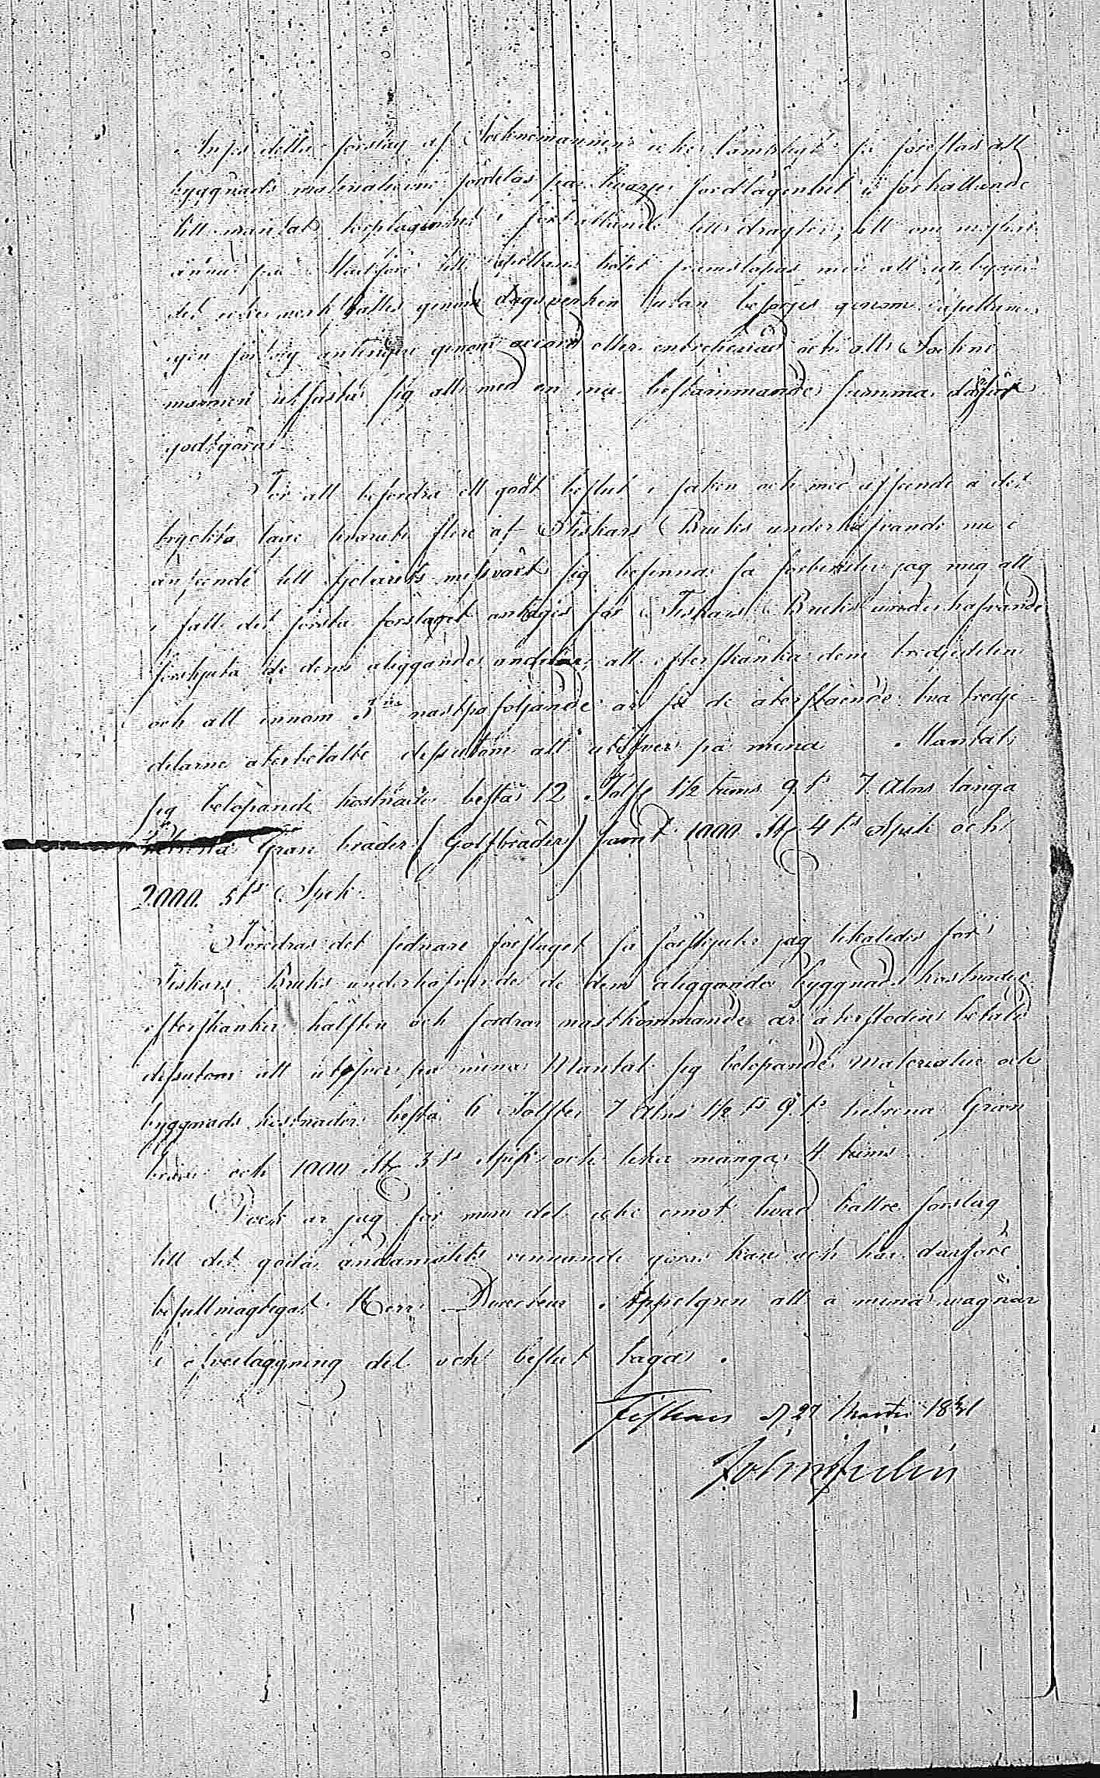 Anses detta förslag af Socknemännen icke lämpligt så föreslås att
byggnads materialierne fördelas på hvarje jordlägenhet i förhållande
till mantal, torplägenhet i förhållande till dragter, till
på till Capellans bolet framskapas men att
det icke verkställes genom dagsverken utan besörjes genom Capellans
egen försorg antingen genom accord eller entreprenad och att Sockne
männen utfästa sig att med en nu bestämmande summa därför
godtgöra.
För att befordra ett godt beslut i saken och med afseende å det
tryckta läge hvaruti flere af Fiskars Bruks underhafvande nu i
anseende till fjolårets missväxt sig befinna så förbinder jag mig att
i fall det första förslaget antages för Fiskars Bruks underhafvande
förskjuta de dem åliggande andelar, att efterskänka dem tredjedelen
och att innom 3ne nästpåföljande år få de återstående två tredje
delarne återbetalte dessutom att utöfver på mina Mantal
sig belöpande kostnader bestå 12 Tolft 1/2 tums 9 ts 7 Alns långa
Gran bräder (Golfbräder) samt 1000 St 4 ts Spik och
2000 5ts Spik.
Föredras det sednare förslaget så förskjuter jag likaledes för
Fiskars Bruks underhafvande de dem åliggande byggnads kostnader
efterskänker hälften och fordrar nästkommande år återstoden betald
dessutom att utöfver på mina Mantal sig belöpande materialier och
byggnads kostnader bestå 6 Tolfter 7 Alns 1/2 ts 9 ts helrena Gran
bräder och 1000 St 3 ts Spik och lika många 4 tums.
Dock är jag för min del icke emot hvad bättre förslag
till det goda ändamålets vinnande göras kan och har därföre
befullmägtigat Herr Directeur Appelgren att å mina wägnar
i öfverläggning del och beslut taga.
Fiskars d 27 Martii 1831
John Julin